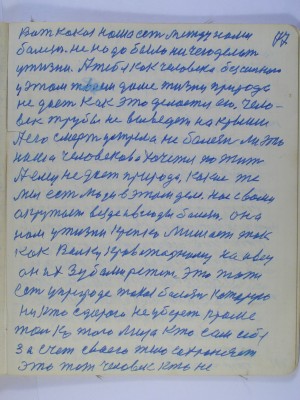 Вот какая наша есть между нами
болезнь. не надо было ничего делать
у жизни. А тебя как человека бессильного
у этом твоем даме жизни природа
не дает как это делается ею. Чело-
век трубы не выведет на крыши
Аего смерть догнала не болезнь ли эта
наша человекова хочется то жить
Аему не дает природа, какие же
мы есть люди в этом деле. нас своими
окружили везде всюду болезнь, она
нам у жизни крепко мешает так
как Волку кровожадному на овцу
он их зубами режет. Это тоже
есть у природе такая болезнь которую
ни кто с дороги не уберет кроме
только того мира кто сам себя
за счет своего тело сохраняет
Это тот человек кто не